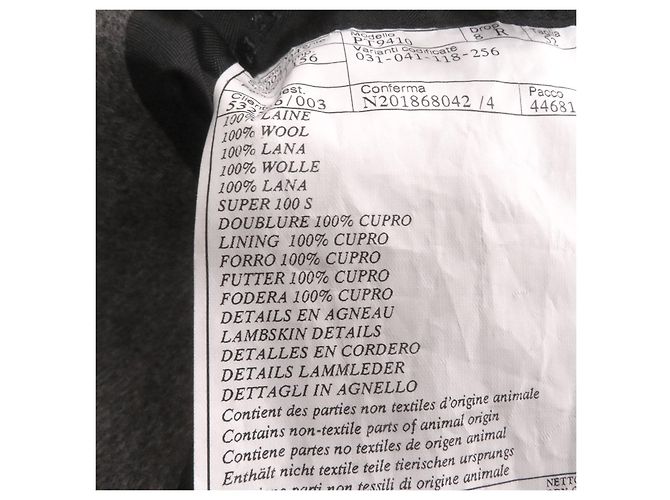 Modello Drop Taglia
PT9410 8 R 52
Varianti codificate
156 031-041-118-256
Cliente est. Conferma Pacco
/003 N201868042 /4 44681
100% LAINE
100% WOOL
100% LANA
100% WOLLE
100% LANA
SUPER 100 S
DOUBLURE 100% CUPRO
LINING 100% CUPRO
FORRO 100% CUPRO
FUTTER 100% CUPRO
FODERA 100% CUPRO
DETAILS EN AGNEAU
LAMBSKIN DETAILS
DETALLES EN CORDERO
DETAILS LAMMLEDER
DETTAGLI IN AGNELLO
Contient des parties non textiles d'origine animale
Contains non-textile parts of animal origin
Contiene partes no textiles de origen animal
Enthält nicht textile teile tierischen ursprungs
parti non tessili di origine animale
NETTO